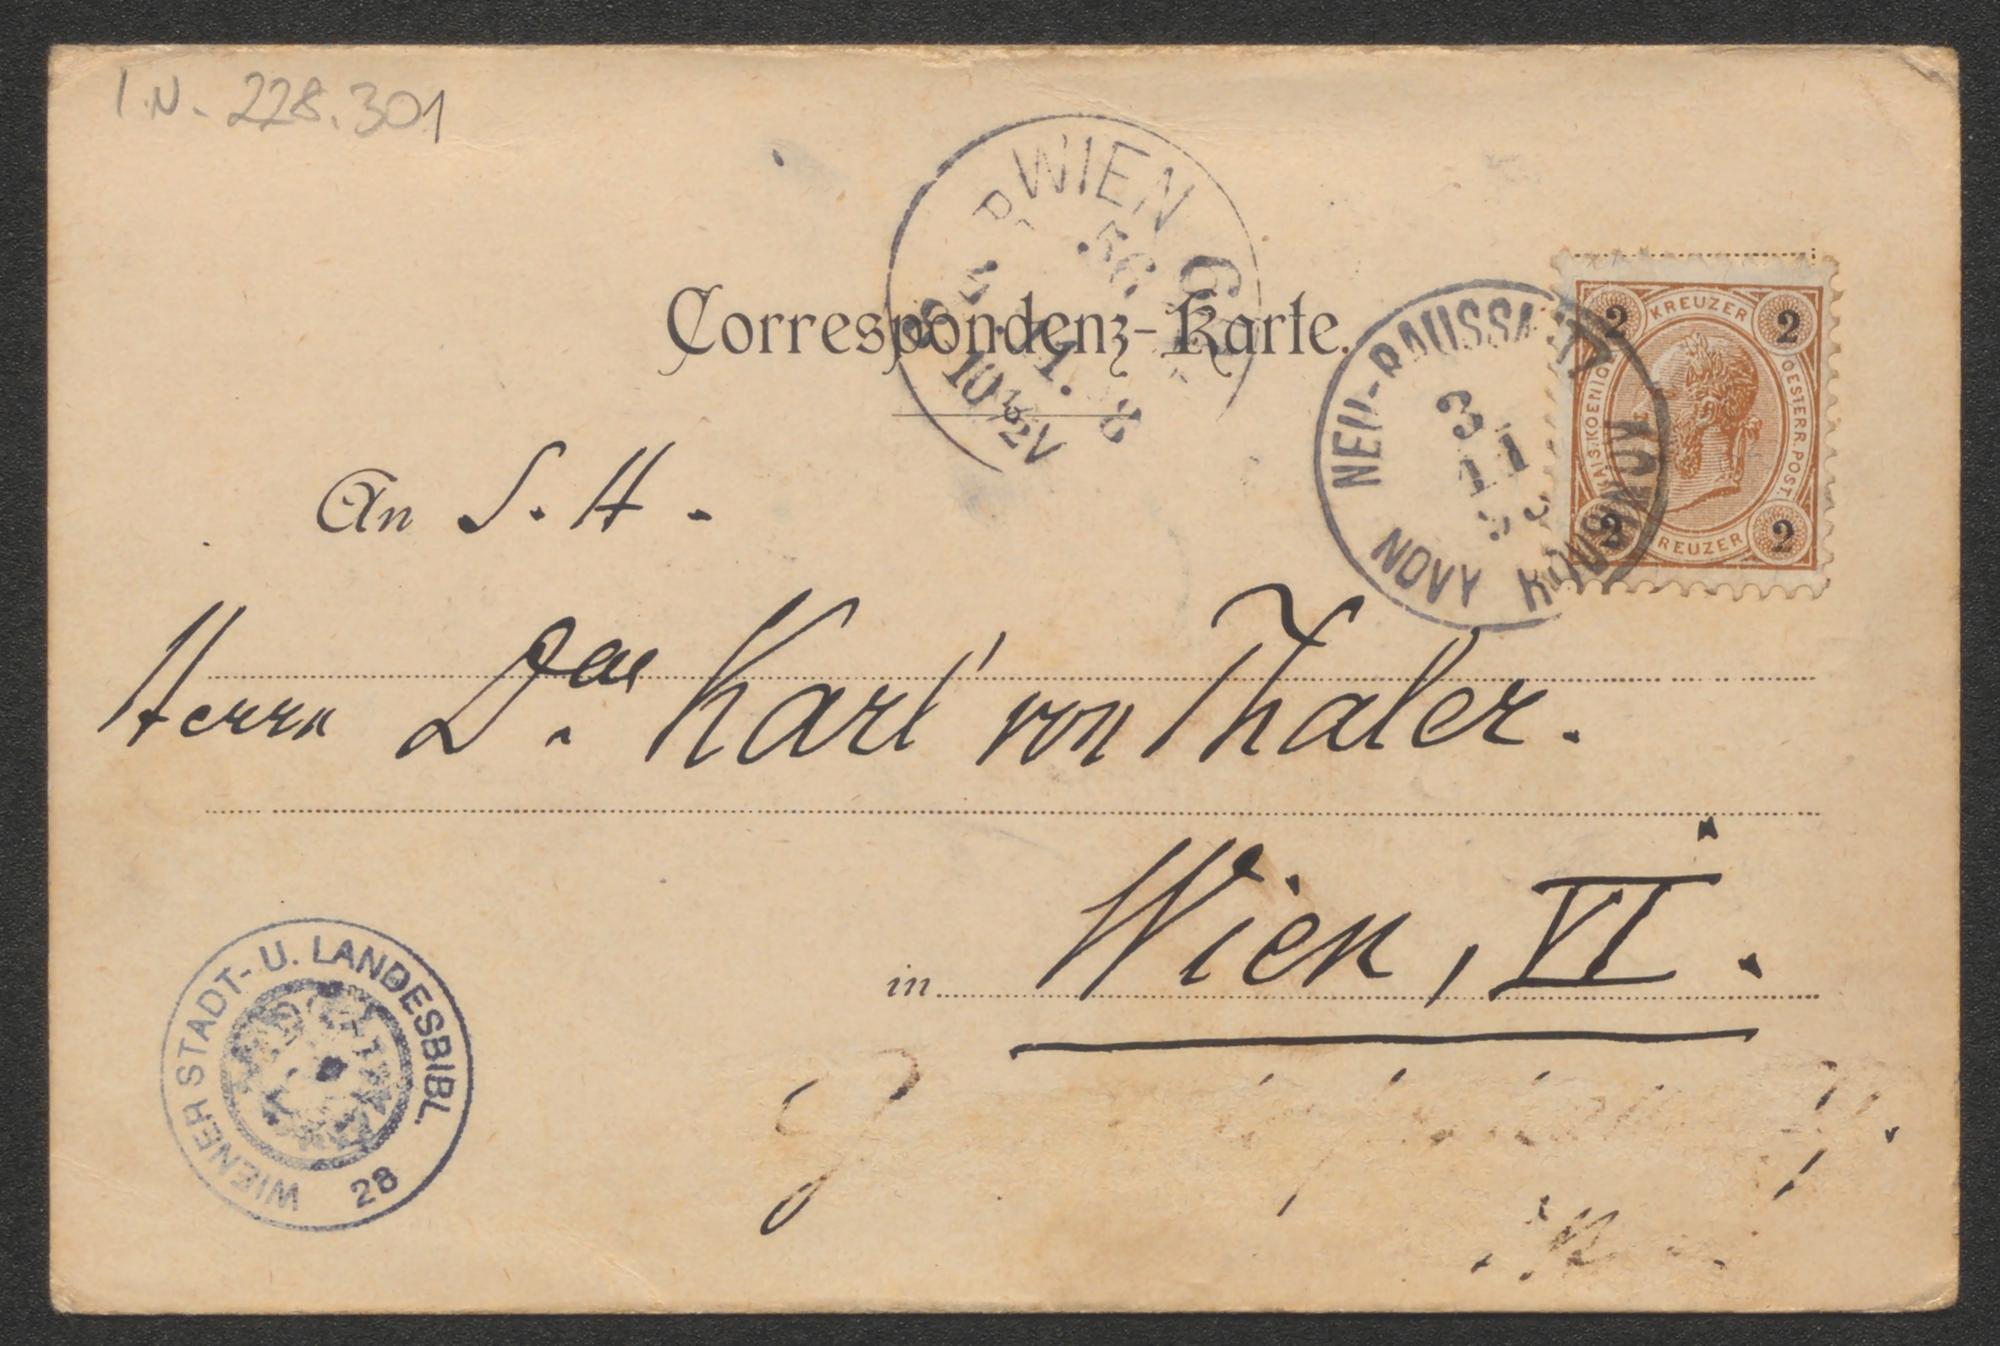 I.N. 228.301
WIEN
5. 11. 98
10½V
Correspondenz-Karte.
NEU-RAUSSNITZ
3
11
NOVY ROUSINOV
2 KREUZER 2
KAIS. KOENIGL. OESTERR. POST.
2 KREUZER 2
An S. H.
Herrn Dr. Karl von Thaler.
in Wien, VI.
WIENER STADT- U. LANDESBIBL.
28